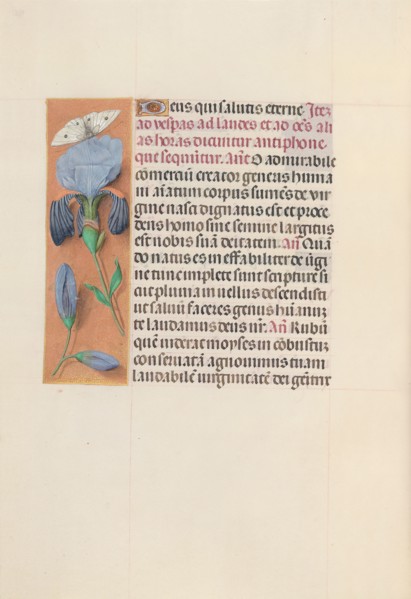 Deus qui salutis eterne. Itez
ad vespas ad laudes et ad oēs ali
as horas dicuntur antiphone
que sequūtur. Añe O admirabile
cōmerciū creator generis huma
ni aīatum corpus sumēs de vir
gine nasci dignatus est et proce
dens homo sine semine largitus
est nobis suā deitatem. Añ Quā
do natus es ineffabiliter de v̄gi
ne tunc implete sunt scripture si
cut pluuia in vellus descendisti
ut saluū faceres genus hūanū
te laudamus deus nr̄. Añ Rubū
quē viderat moyses incōbustū
conseruatā agnouimus tuam
laudabilē uirginitatē dei genitrix